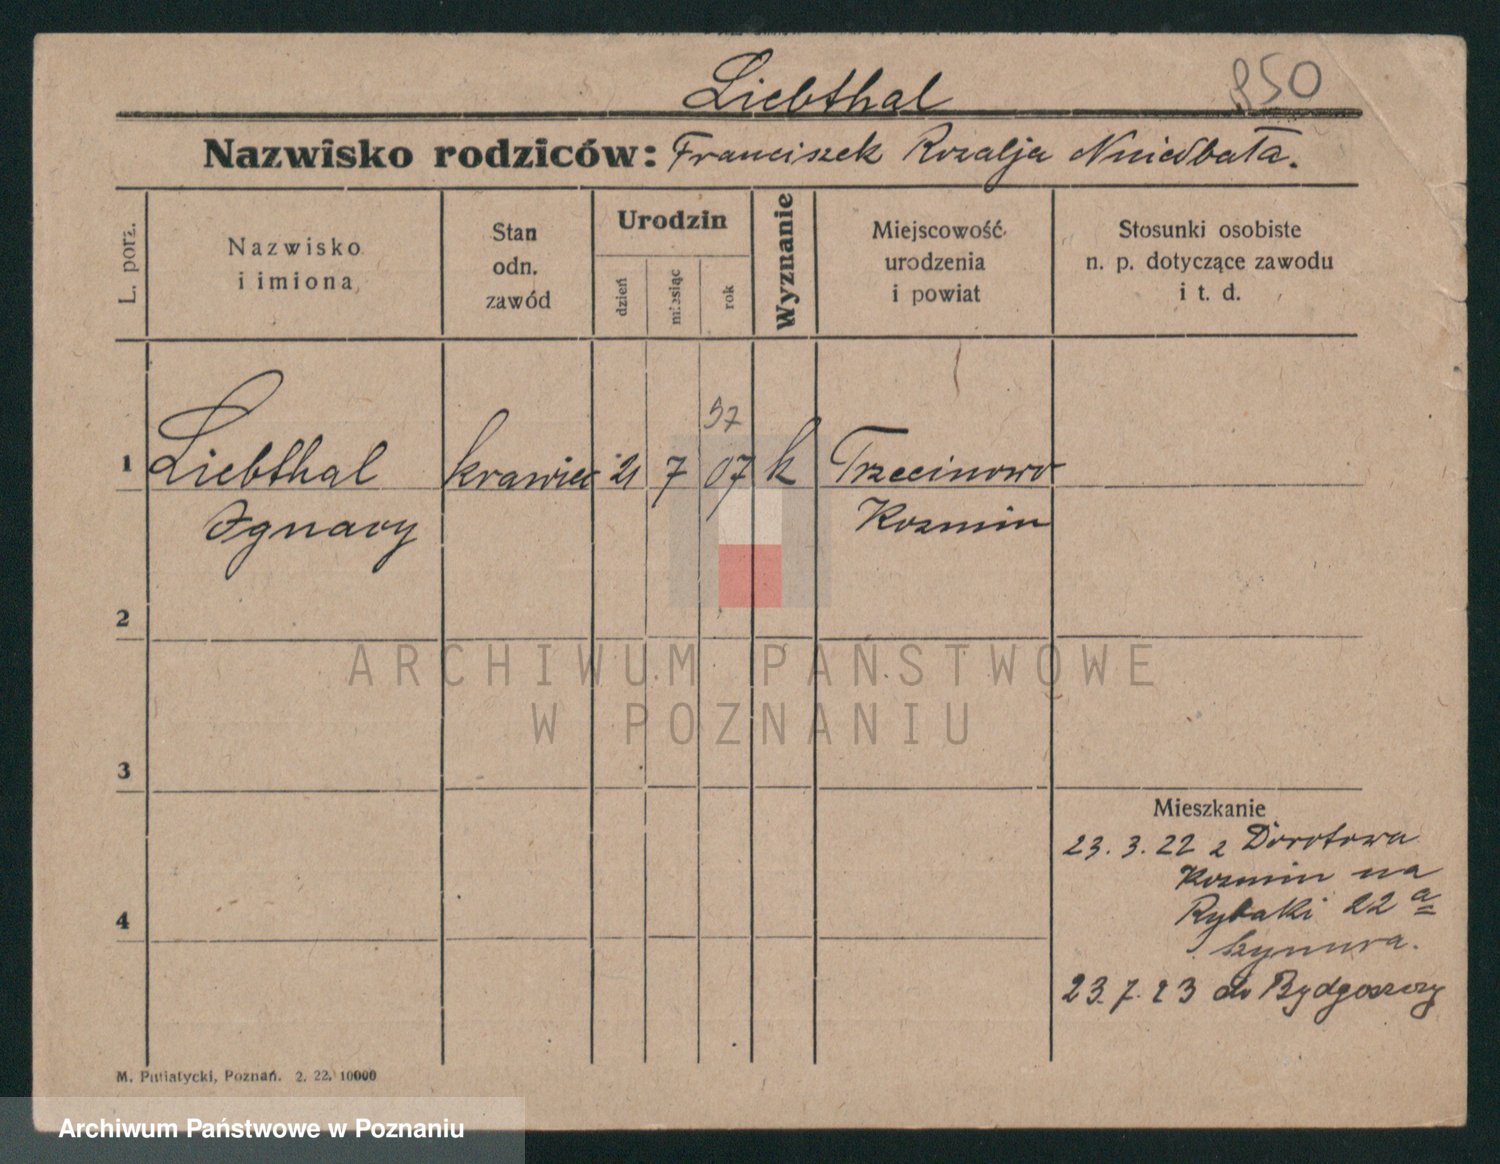 Liebthal
950
Nazwisko rodziców: Franciszek Rozalja Niedbała.
L. porz.
Nazwisko i imiona
Stan odn. zawód
Urodzin
dzień
miesiąc
rok
Wyznanie
Miejscowość urodzenia i powiat
Stosunki osobiste n. p. dotyczące zawodu i t. d.
37
1 Liebthal krawiec 21 7 07 k
Ignacy Kozmin
2
ARCHIWUM PAŃSTWOWE
W POZNANIU
3
Mieszkanie
23. 3. 22 z Dorotowa
Kozmin na
Rybaki 22 a
23. 7. 23 do Bydgoszczy
4
M. Putiatycki, Poznań. 2. 22. 10000
Archiwum Państwowe w Poznaniu